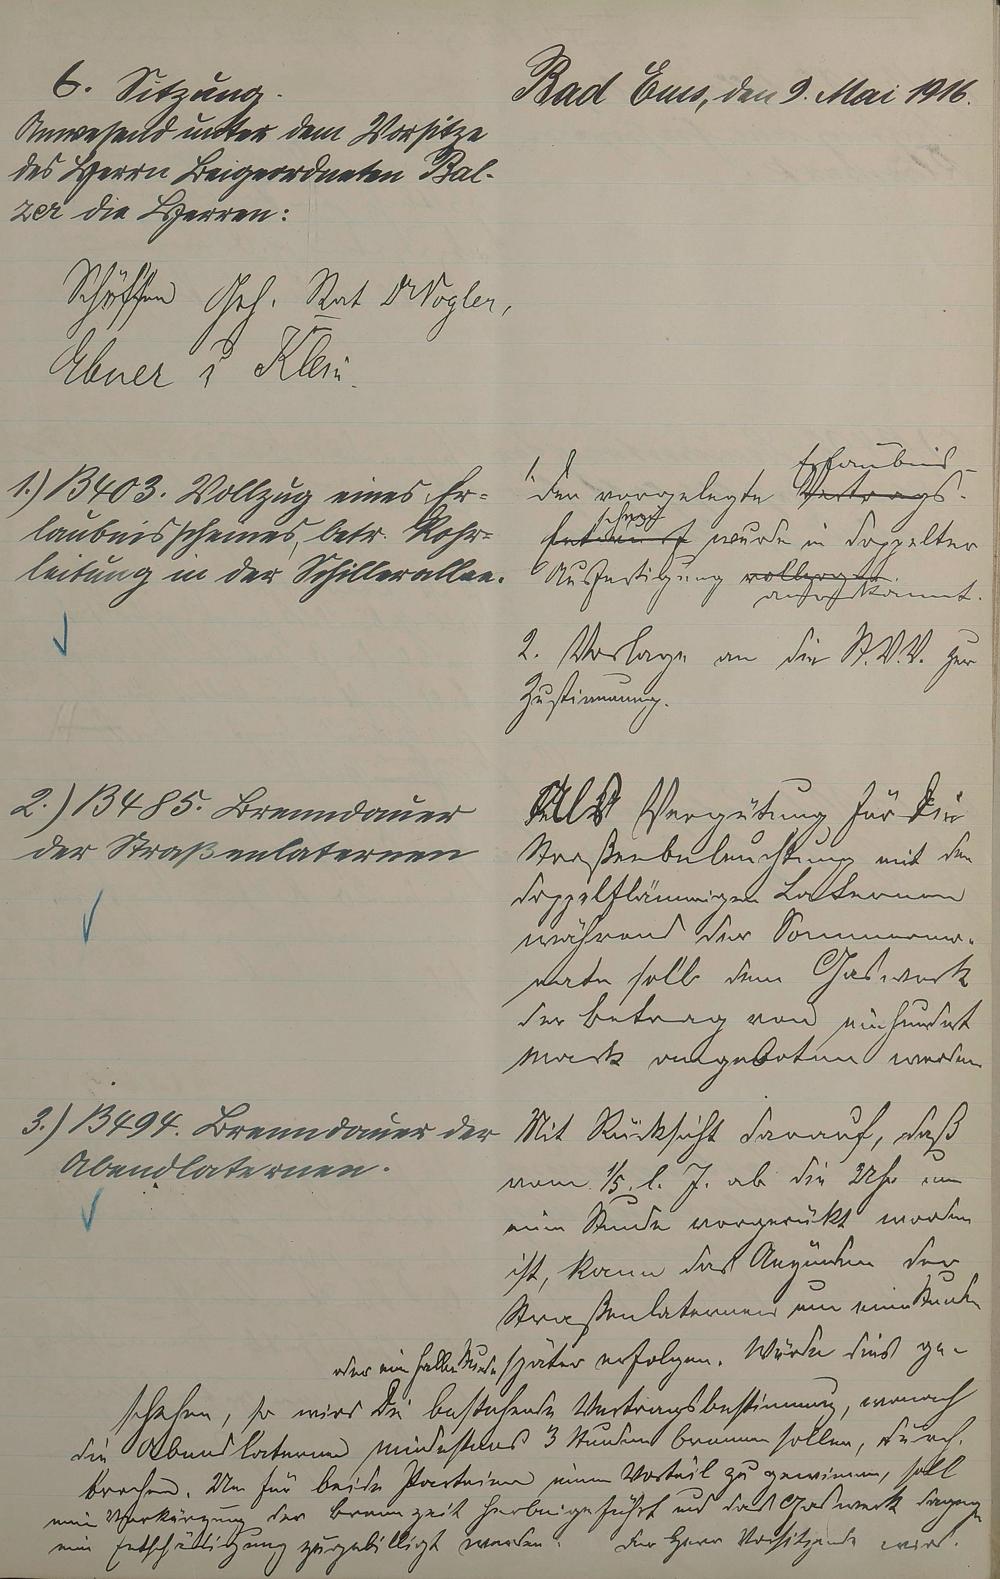 6. Sitzung.
Bad Ems, den 9. Mai 1916.
Anwesend unter dem Vorsitze
des Herrn Beigeordneten Bal-
zer die Herren:
Schöffen Geh. Rat Dr Vogler,
Ebner u Klein.
1.) B403. Vollzug eines Er=
laubnisscheines, betr. Rohr=
leitung in der Schillerallee.
1. Erlaubnis-
Den vorgelegte Vertrags-
schein
Entwurf wurde in doppelter
Ausfertigung vollzogen.
anerkannt.
2. Vorlage an die St.V.V. zur
Zustimmung.
2.) B485. Brenndauer
der Straßenlaternen
Als Vergütung für die
Straßenbeleuchtung mit den
doppelflämmigen Laternen
während der Sommermo-
nate soll dem Gaswerk
der Betrag von einhundert
Mark angeboten werden
3.) B494. Brenndauer der
Abendlaternen.
Mit Rücksicht darauf, daß
vom 1/5. l. J. ab die Uhr um
eine Stunde vorgerückt worden
ist, kann das Anzünden der
Straßenlaternen um eine Stunde
oder eine halbe Stunde später erfolgen. Würde dies ge-
schehen, so wird die bestehende Vertragsbestimmung, wonach
die Abendlaternen mindestens 3 Stunden brennen sollen, durch-
brochen. Um für beide Parteien einen Vorteil zu gewinnen, soll
eine Verkürzung der Brennzeit herbeigeführt und das Gaswerk dagegen
eine Entschädigung zugebilligt werden. Der Herr Vorsitzende wird